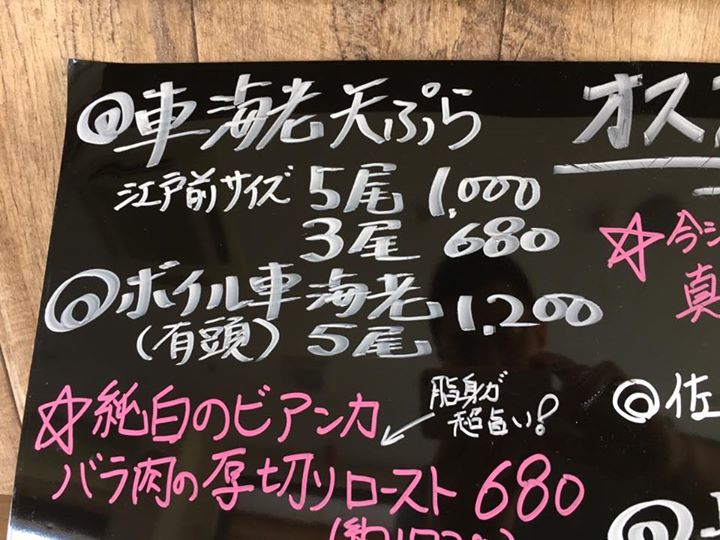 ◎車海老天ぷら
江戸前サイズ 5尾 1,000
3尾 680
◎ボイル車海老
(有頭) 5尾 1,200
☆純白のビアンカ
脂身が
超旨い!
バラ肉の厚切りロースト 680
オス
☆今シ
真
◎佐